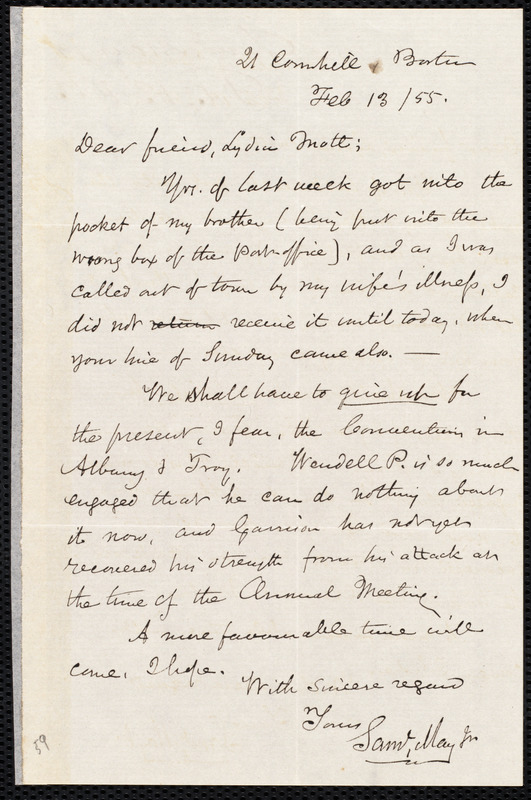 21 Cornhill, Boston
Feb 13 /55.
Dear friend, Lydia Mott;
Yrs. of last week got into the
pocket of my brother (being put into the
wrong box of the Post-office), and as I was
called out of town by my wife's illness, I
did not return receive it until today, when
your line of Sunday came also. —
We shall have to give up for
the present, I fear, the Convention in
Albany & Troy. Wendell P. is so much
engaged that he can do nothing about
it now, and Garrison has not yet
recovered his strength from his attack at
the time of the Annual Meeting.
A more favourable time will
come, I hope.
With sincere regard
Yours
Saml. May Jr
59